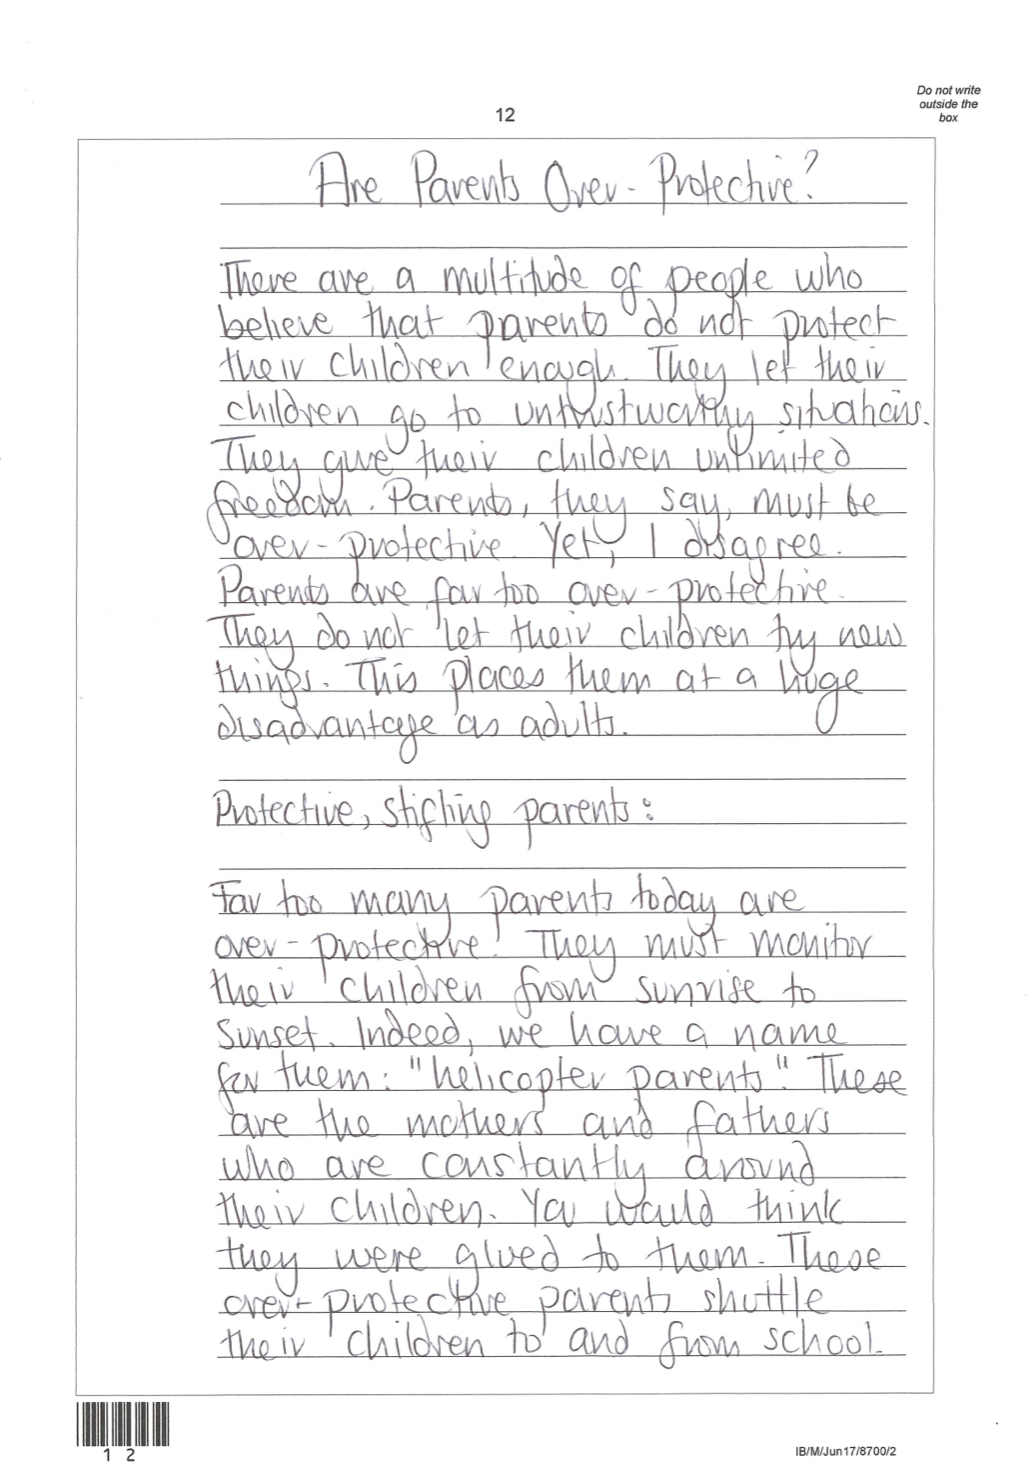 Do not write
outside the
box
12
Are Parents Over-Protective?
There are a multitude of people who
believe that parents do not protect
their children enough. They let their
children go to untrustworthy situations.
They give their children unlimited
freedom. Parents, they say, must be
over-protective. Yet, I disagree.
Parents are far too over-protective.
They do not let their children try new
things. This places them at a huge
disadvantage as adults.
Protective, stifling parents:
Far too many parents today are
over-protective. They must monitor
their children from sunrise to
sunset. Indeed, we have a name
for them: "helicopter parents". These
are the mothers and fathers
who are constantly around
their children. You would think
they were glued to them. These
over-protective parents shuttle
their children to and from school.
1 2
IB/M/Jun17/8700/2